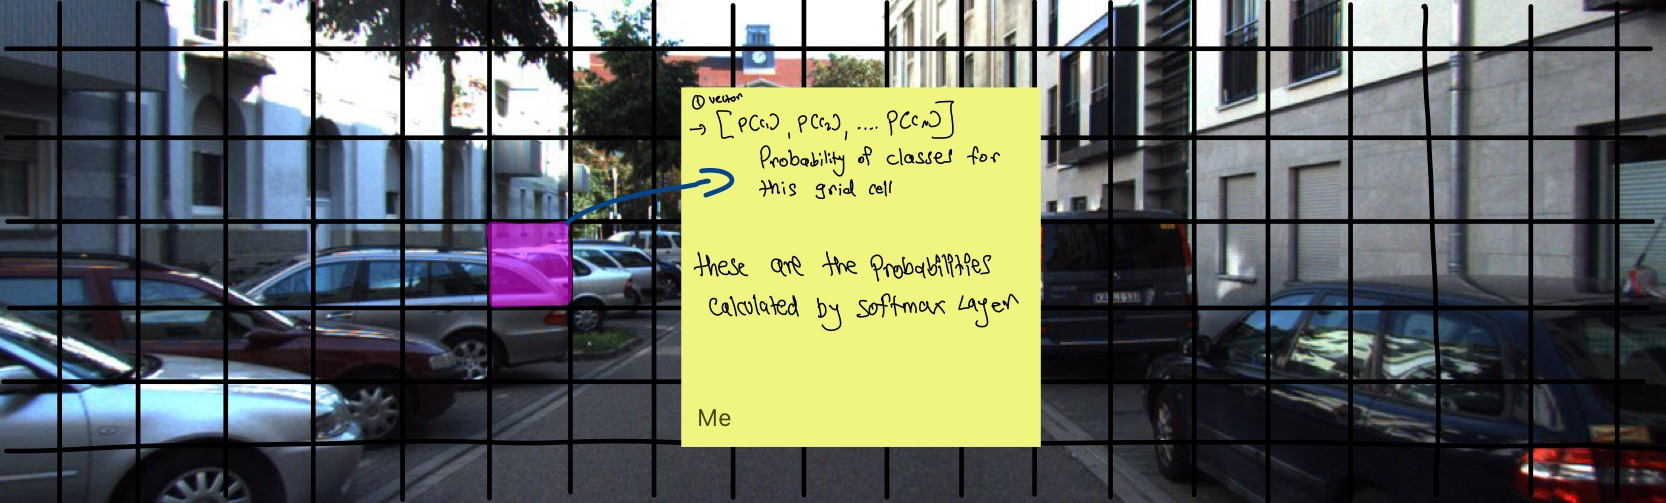 ① vector
→ [ P(C₁), P(C₂), .... P(Cₘ)]
Probability of classes for
this grid cell
these are the Probabilities
Calculated by softmax Layer
Me